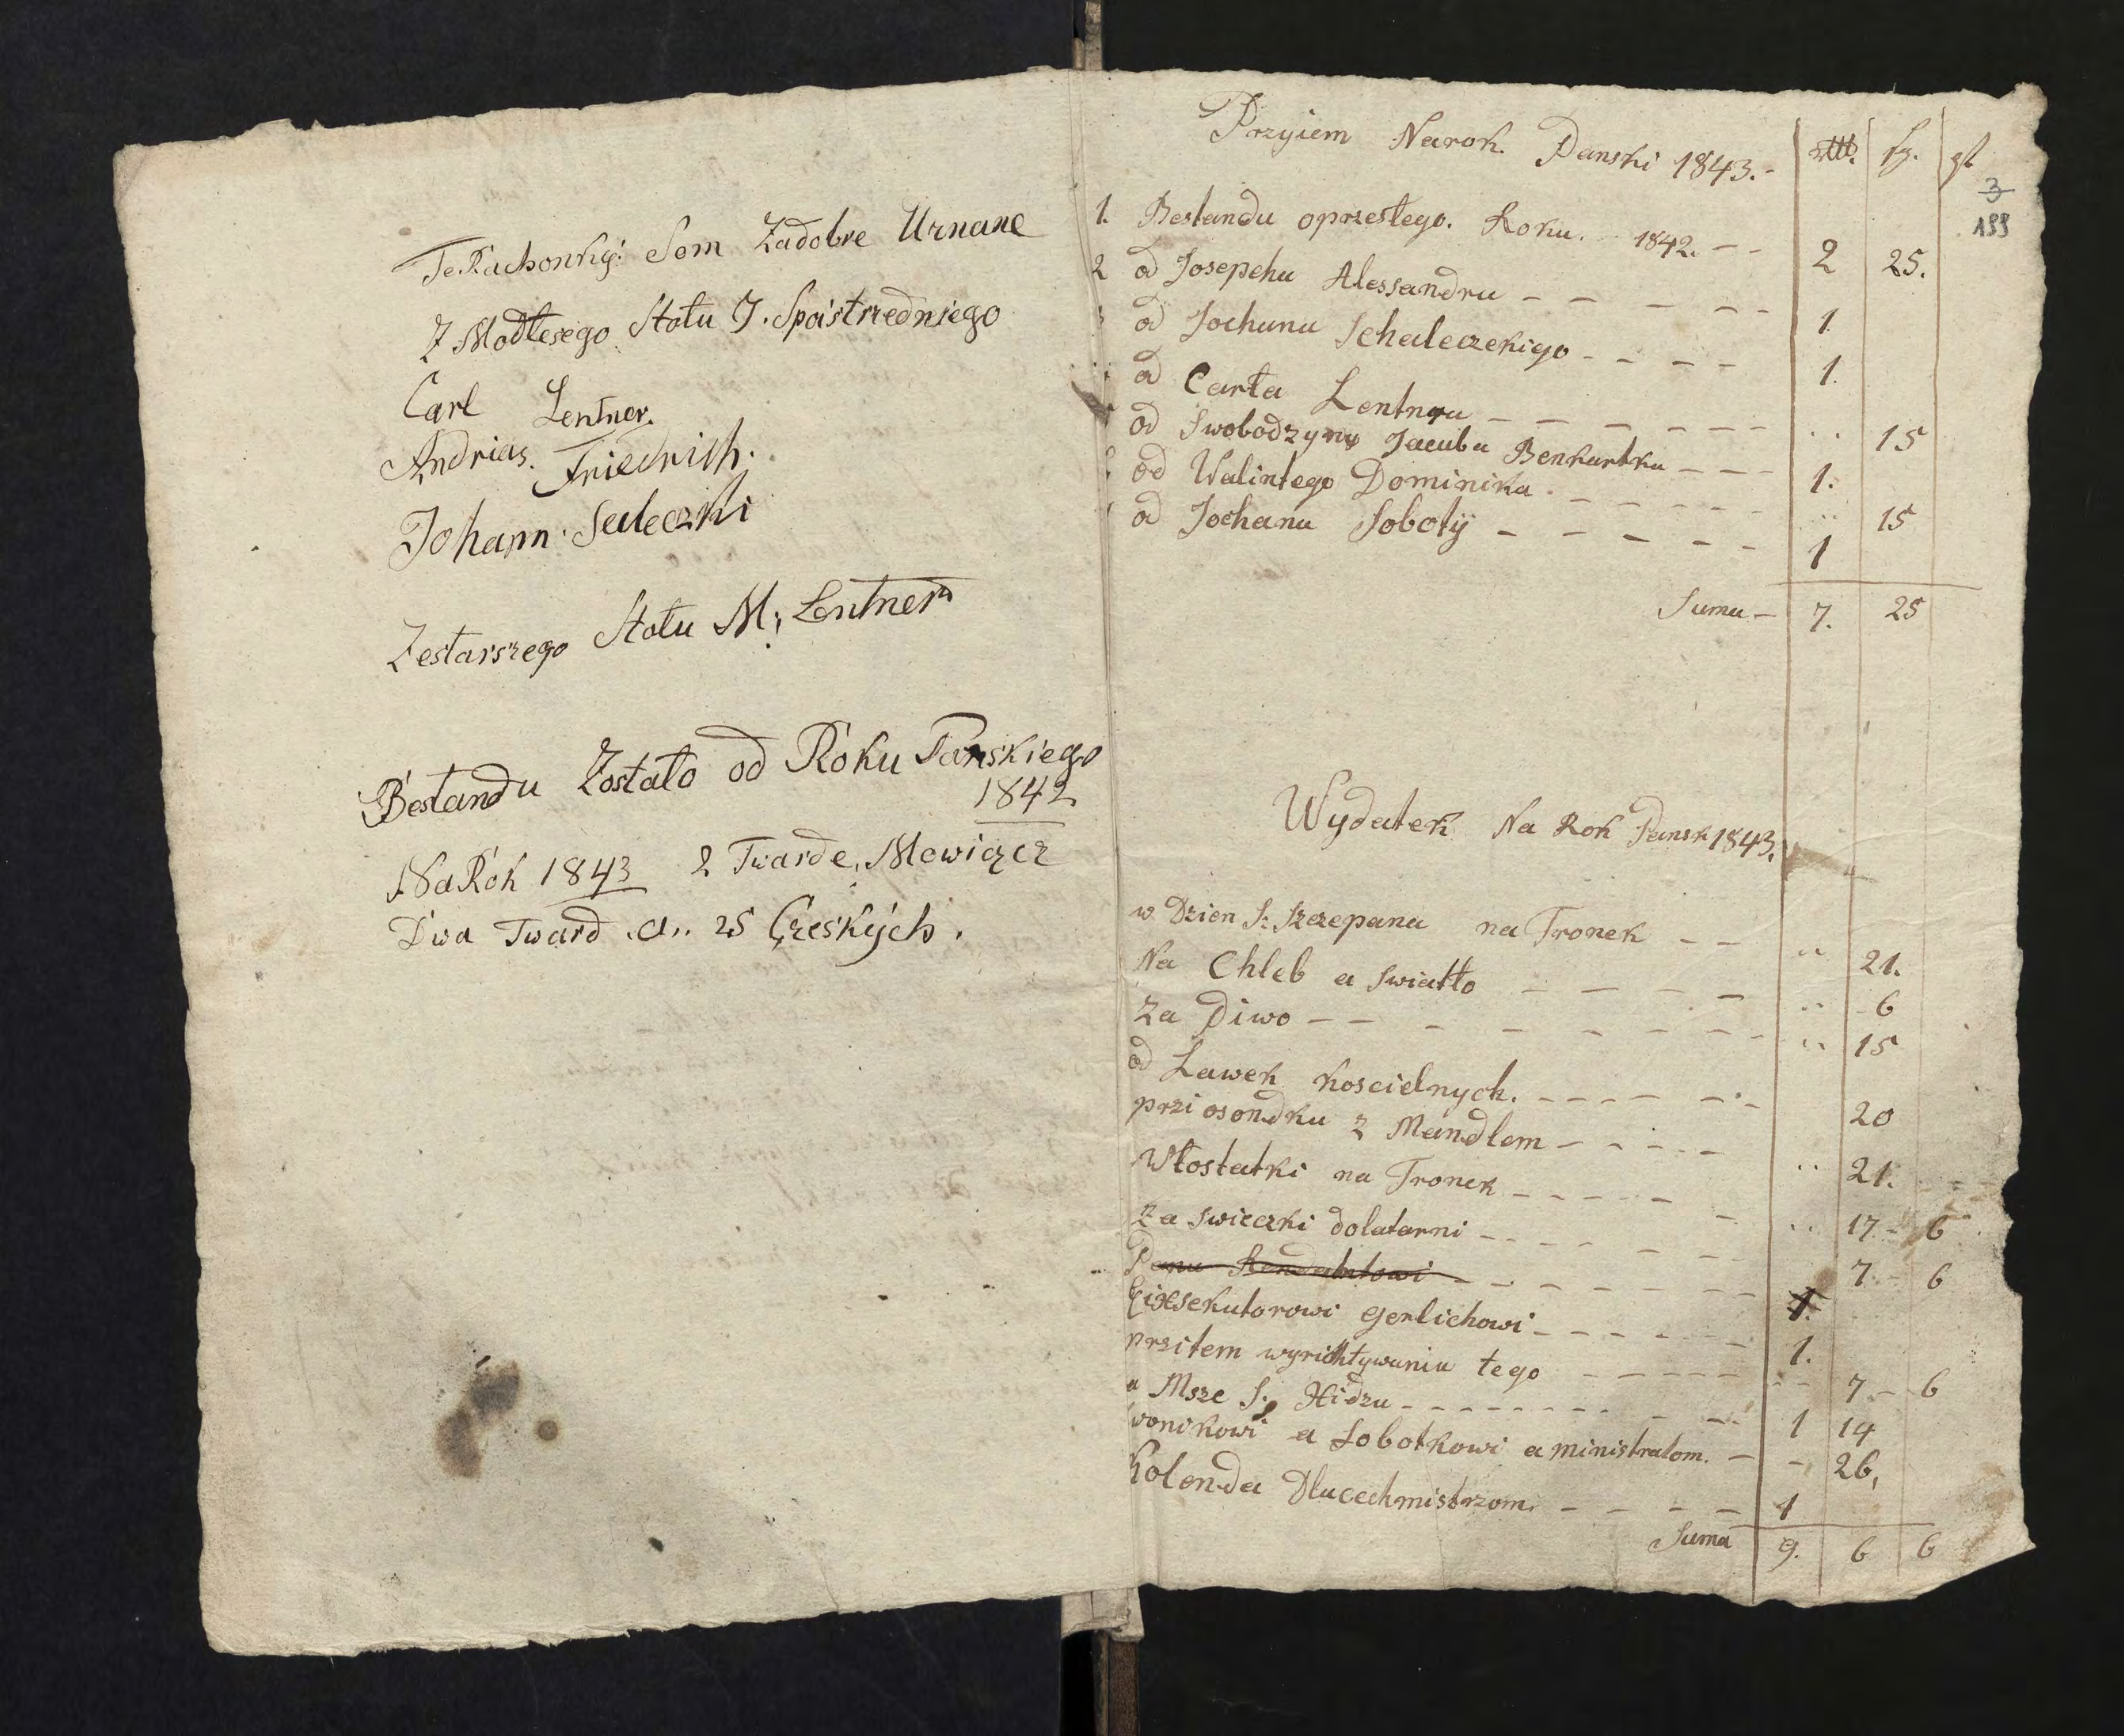 Te Rachonky: Som Zadobre Uznane
Z Modłesego Stołu J. Spoistrzedniego
Carl Lentner.
Andrias. Friedrich.
Johann. Saleczki
Zestarszego Stołu M; Lentner
Bestandu Zostało od Roku Panskiego
1842
Na Rok 1843 2 Twarde, Mowiącz
Dwa Tward. a.. 25 Czeských.
Przyiem Narok. Panski 1843. - sg.
3
199
1. Bestandu oprzestego. Roku. 1842. - - 2 25.
2 od Josepehu Alessandru - - - - - - 1
3 od Jochanu Schaleczekigo - - - - 1.
od Carła Lentnera - - - - - - .. 15
od Swobodzyny Jacuba Benkartka - - - 1.
od Walintego Dominika. - - - - - .. 15
od Jochanu Soboty - - - - - 1
Suma - 7. 25
Wydatek Na Rok Pansk 1843.
w Dzien S: Szczepana na Tronek - - .. 21.
Na Chleb a Swiatło - - - - .. 6
Za Piwo - - - - - - - - .. 15
od Lawek koscielnych. - - - - - - 20
przi osondku z Mandlem - - - - - .. 21.
Wlostatki na Tronek - - - - - - .. 17 - 6
Za swieczki dolatarni - - - - - - 7 - 6
Panu - - - - - - - 1.
Eixsekutorowi Gerlichowi - - - - - 1.
przitem wyrichtywaniu tego - - - - - .. 7 - 6
a Msze S. Hidzu - - - - - - - - 1 14
wonikowi a Sobotkowi a ministratom. - - 26,
Kolenda Dlucechmistrzom. - - - - 1
Suma 9. 6 6